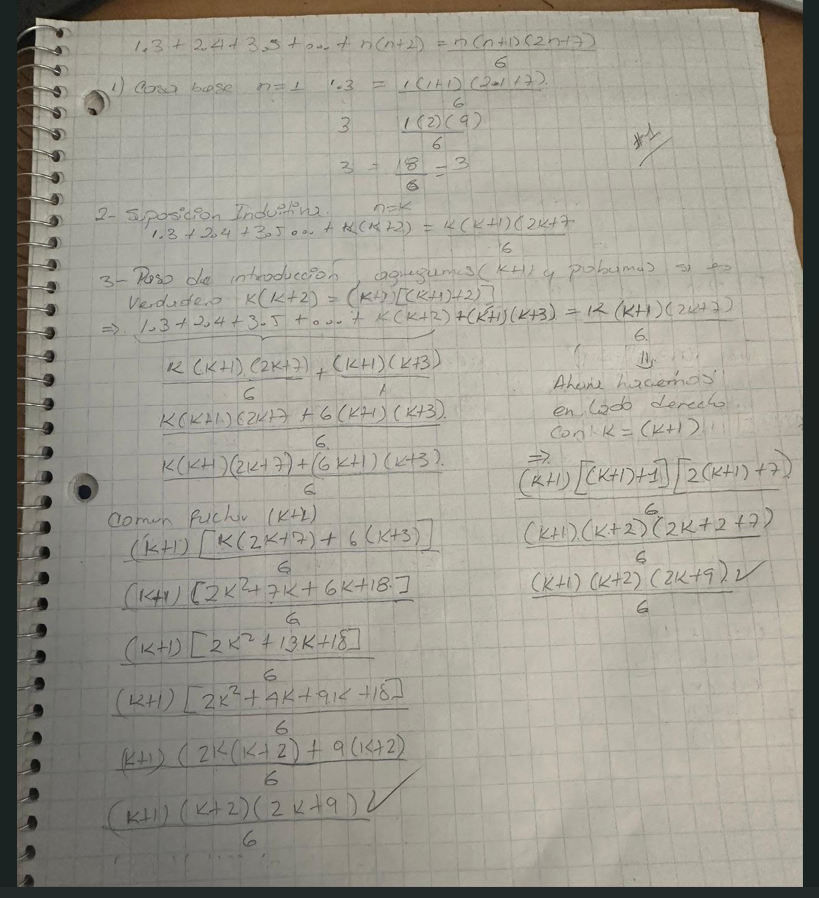 1.3 + 2.4 + 3.5 + .... + n(n+2) = n(n+1)(2n+7)
6
1) Caso base n=1 1.3 = 1(1+1)(2.1+7)
6
3 1(2)(9)
6
3 = 18 = 3
6
#1
2- Suposicion Inductiva n=k
1.3 + 2.4 + 3.5 ... + k(k+2) = k(k+1)(2k+7
6
3- Paso de introducción, agregamos (k+1) y probamos si es
verdadero k(k+2) = (k+1)[(k+1)+2)]
⇒ 1.3 + 2.4 + 3.5 + .... + k(k+2) + (k+1)(k+3) = k(k+1)(2k+7)
6
k(k+1)(2k+7) + (k+1)(k+3)
6 1
k(k+1)(2k+7 + 6(k+1)(k+3)
6
k(k+1)(2k+7) + (6k+1)(k+3)
6
Comun factor (k+1)
(k+1)[k(2k+7) + 6(k+3)]
6
(k+1)[2k²+7k+6k+18]
6
(k+1)[2k²+13k+18]
6
(k+1)[2k²+4k+9k+18]
6
(k+1)(2k(k+2) + 9(k+2)
6
(k+1)(k+2)(2k+9) ✓
6
⇓
Ahora hacemos
en lado derecho
con k = (k+1)
⇒
(k+1)[(k+1)+1][2(k+1)+7)
6
(k+1)(k+2)(2k+2+7)
6
(k+1)(k+2)(2k+9) ✓
6